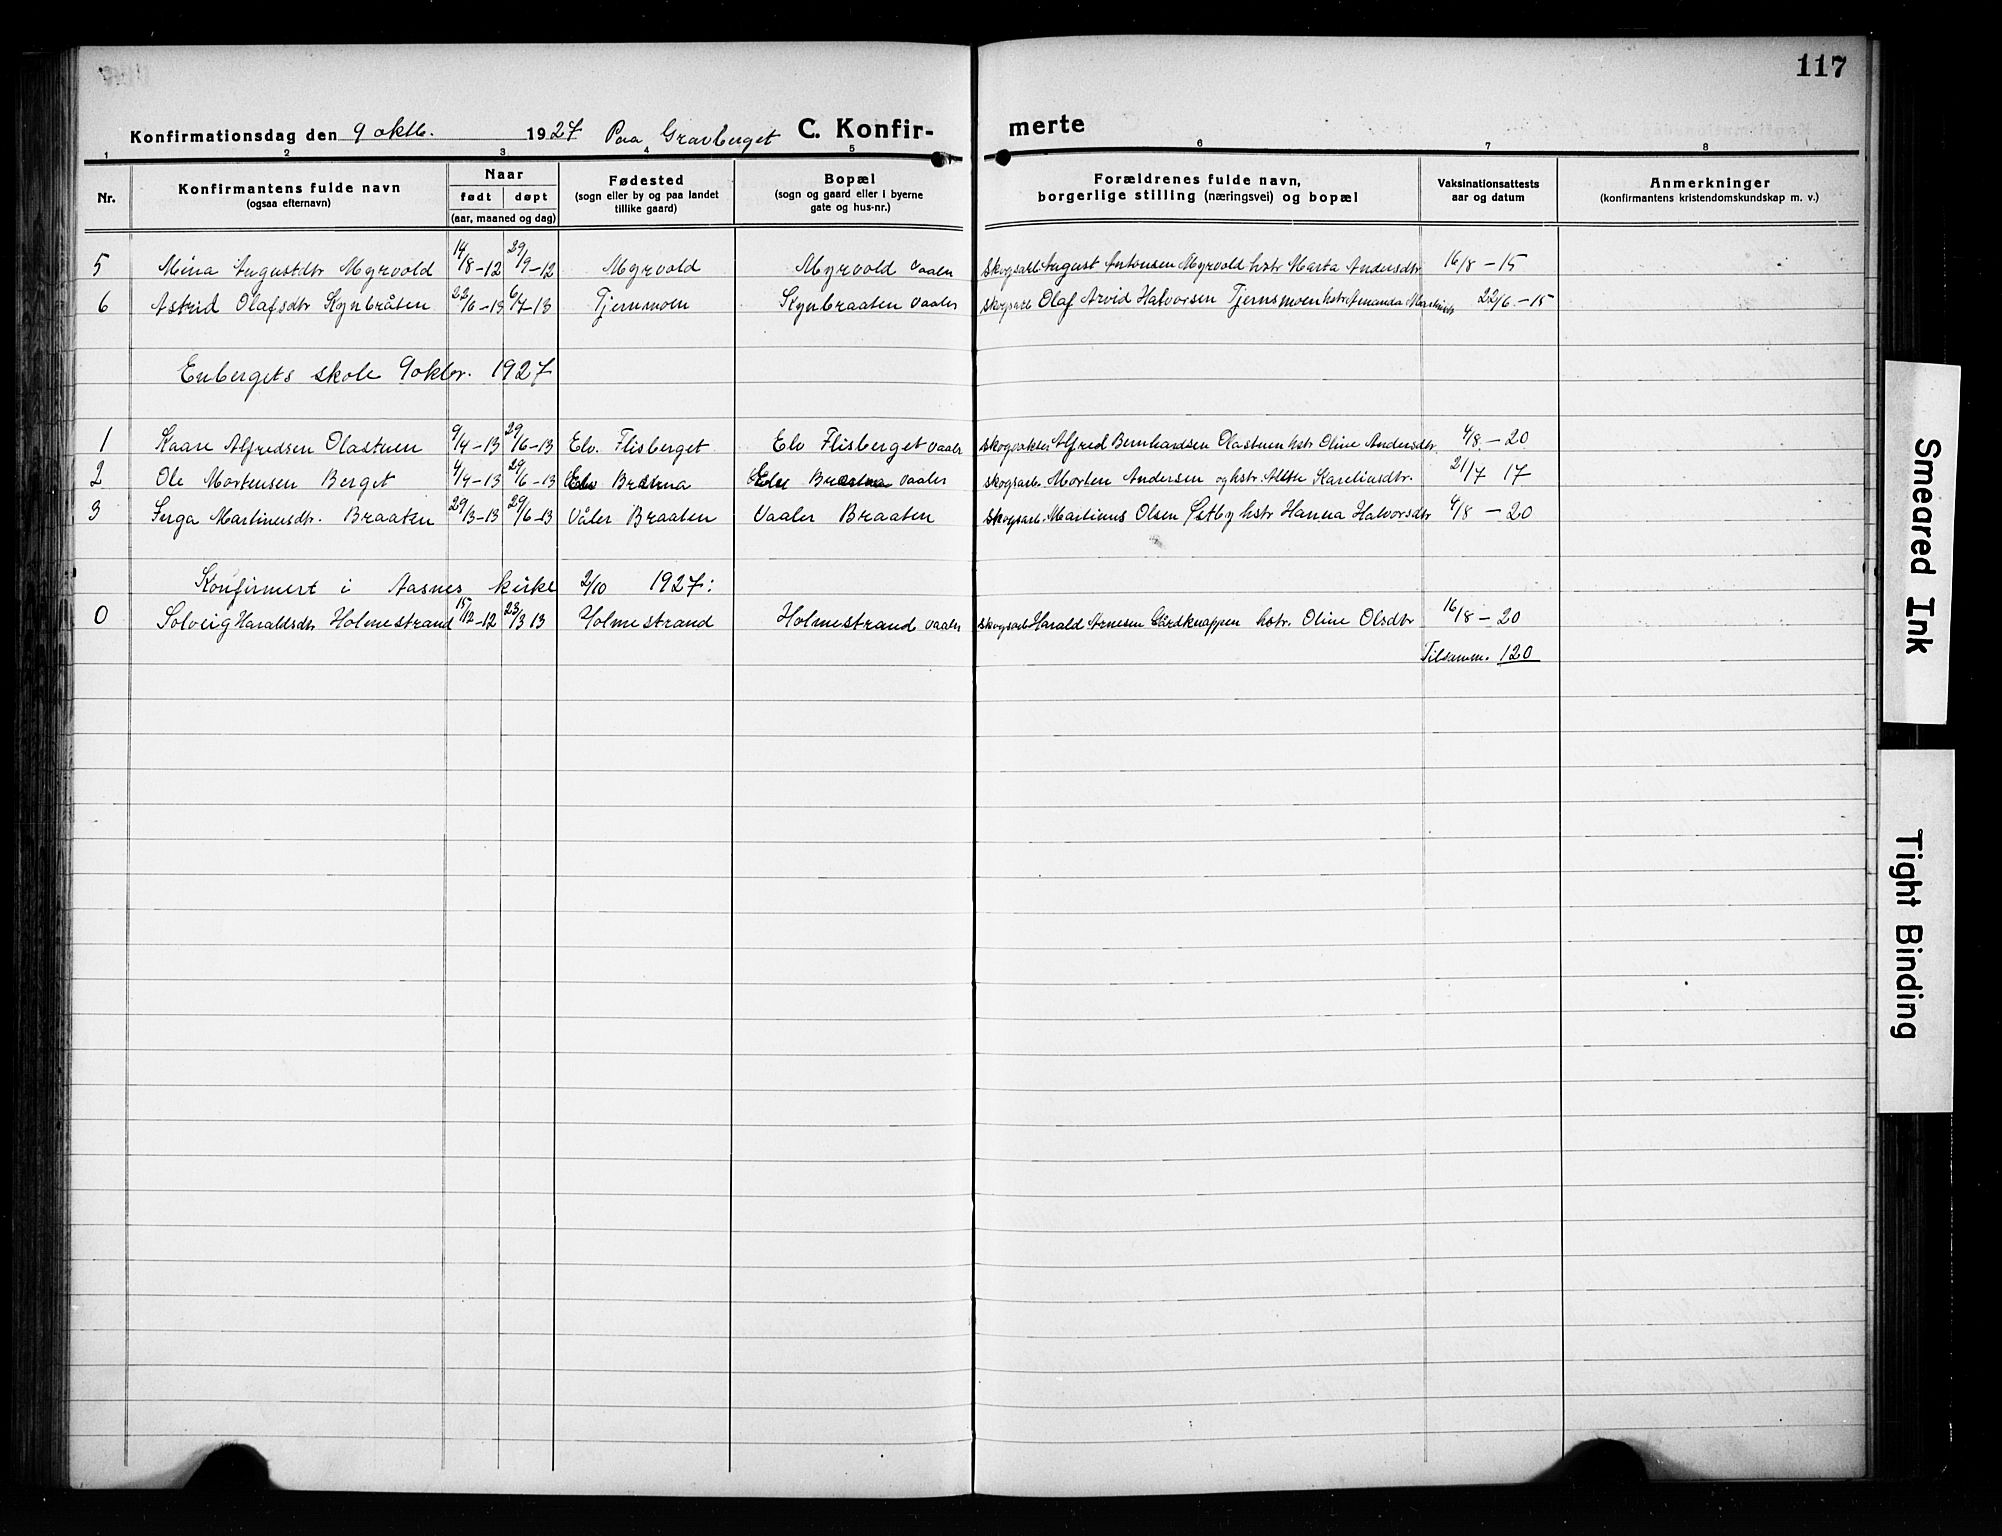 117
Konfirmationsdag den 9 oktb. 1927 Paa Gravberget C. Konfir- merte
1 2 3 4 5 6 7 8
Nr. Konfirmantens fulde navn (ogsaa efternavn) Naar født døpt (aar, maaned og dag) Fødested (sogn eller by og paa landet tillike gaard) Bopæl (sogn og gaard eller i byerne gate og hus-nr.) Forældrenes fulde navn, borgerlige stilling (næringsvei) og bopæl Vaksinationsattests aar og datum Anmerkninger (konfirmantens kristendomskundskap m. v.)
5 Mina Augustdtr Myrvold 14/8-12 29/9-12 Myrvold Myrvold Vaaler skogsarb August Antonsen Myrvold hstr Marta Andersdtr 16/8-15
6 Astrid Olafsdtr Kynbråten 22/6-13 6/7-13 Tjernmoen Kynbraaten Vaaler skogsarb Olaf Arvid Halvorsen Tjernsmoen hstr Amanda 22/6.-15
Enbergets skole 9 oktbr. 1927
1 Kaare Alfredsen Olastuen 9/4-13 29/6-13 Elv. Flisberget Elv Flisberget Vaaler skogvakter Alfred Bernhardsen Olastuen hstr Oline Andersdtr. 4/8.-20
2 Ole Mortensen Berget 4/4-13 29/6-13 Elv Elv Vaaler skogsarb. Morten Andersen og hstr. Kareliusdtr. 21/7 17
3 Inga Martinusdtr. Braaten 29/3-13 29/6-13 Våler Braaten Vaaler Braaten skogsarb. Martinus Olsen Østby hstr Hanna Halvorsdtr 4/8-20
Konfirmert i Aasnes kirke 2/10 1927:
0 Solveig Haraldsdtr Holmestrand 15/12-12 23/3 13 Holmestrand Holmestrand Vaaler skogsarb Harald Arnesen Gårdknappen hstr. Oline Olsdtr 16/8-20
Tilsamm. 120
Smeared Ink
Tight Binding